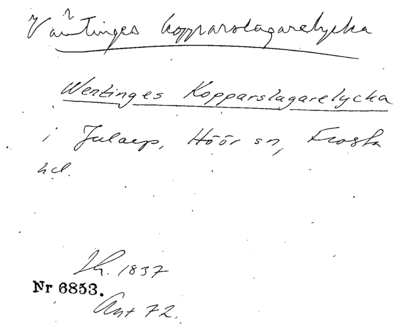 Väntinges kopparslagarelycka
Wentinges Kopparslagarelycka
i Julaep, Höör sn, Frosta
hd.
Lh. 1837
Nr 6853.
Ant 72.